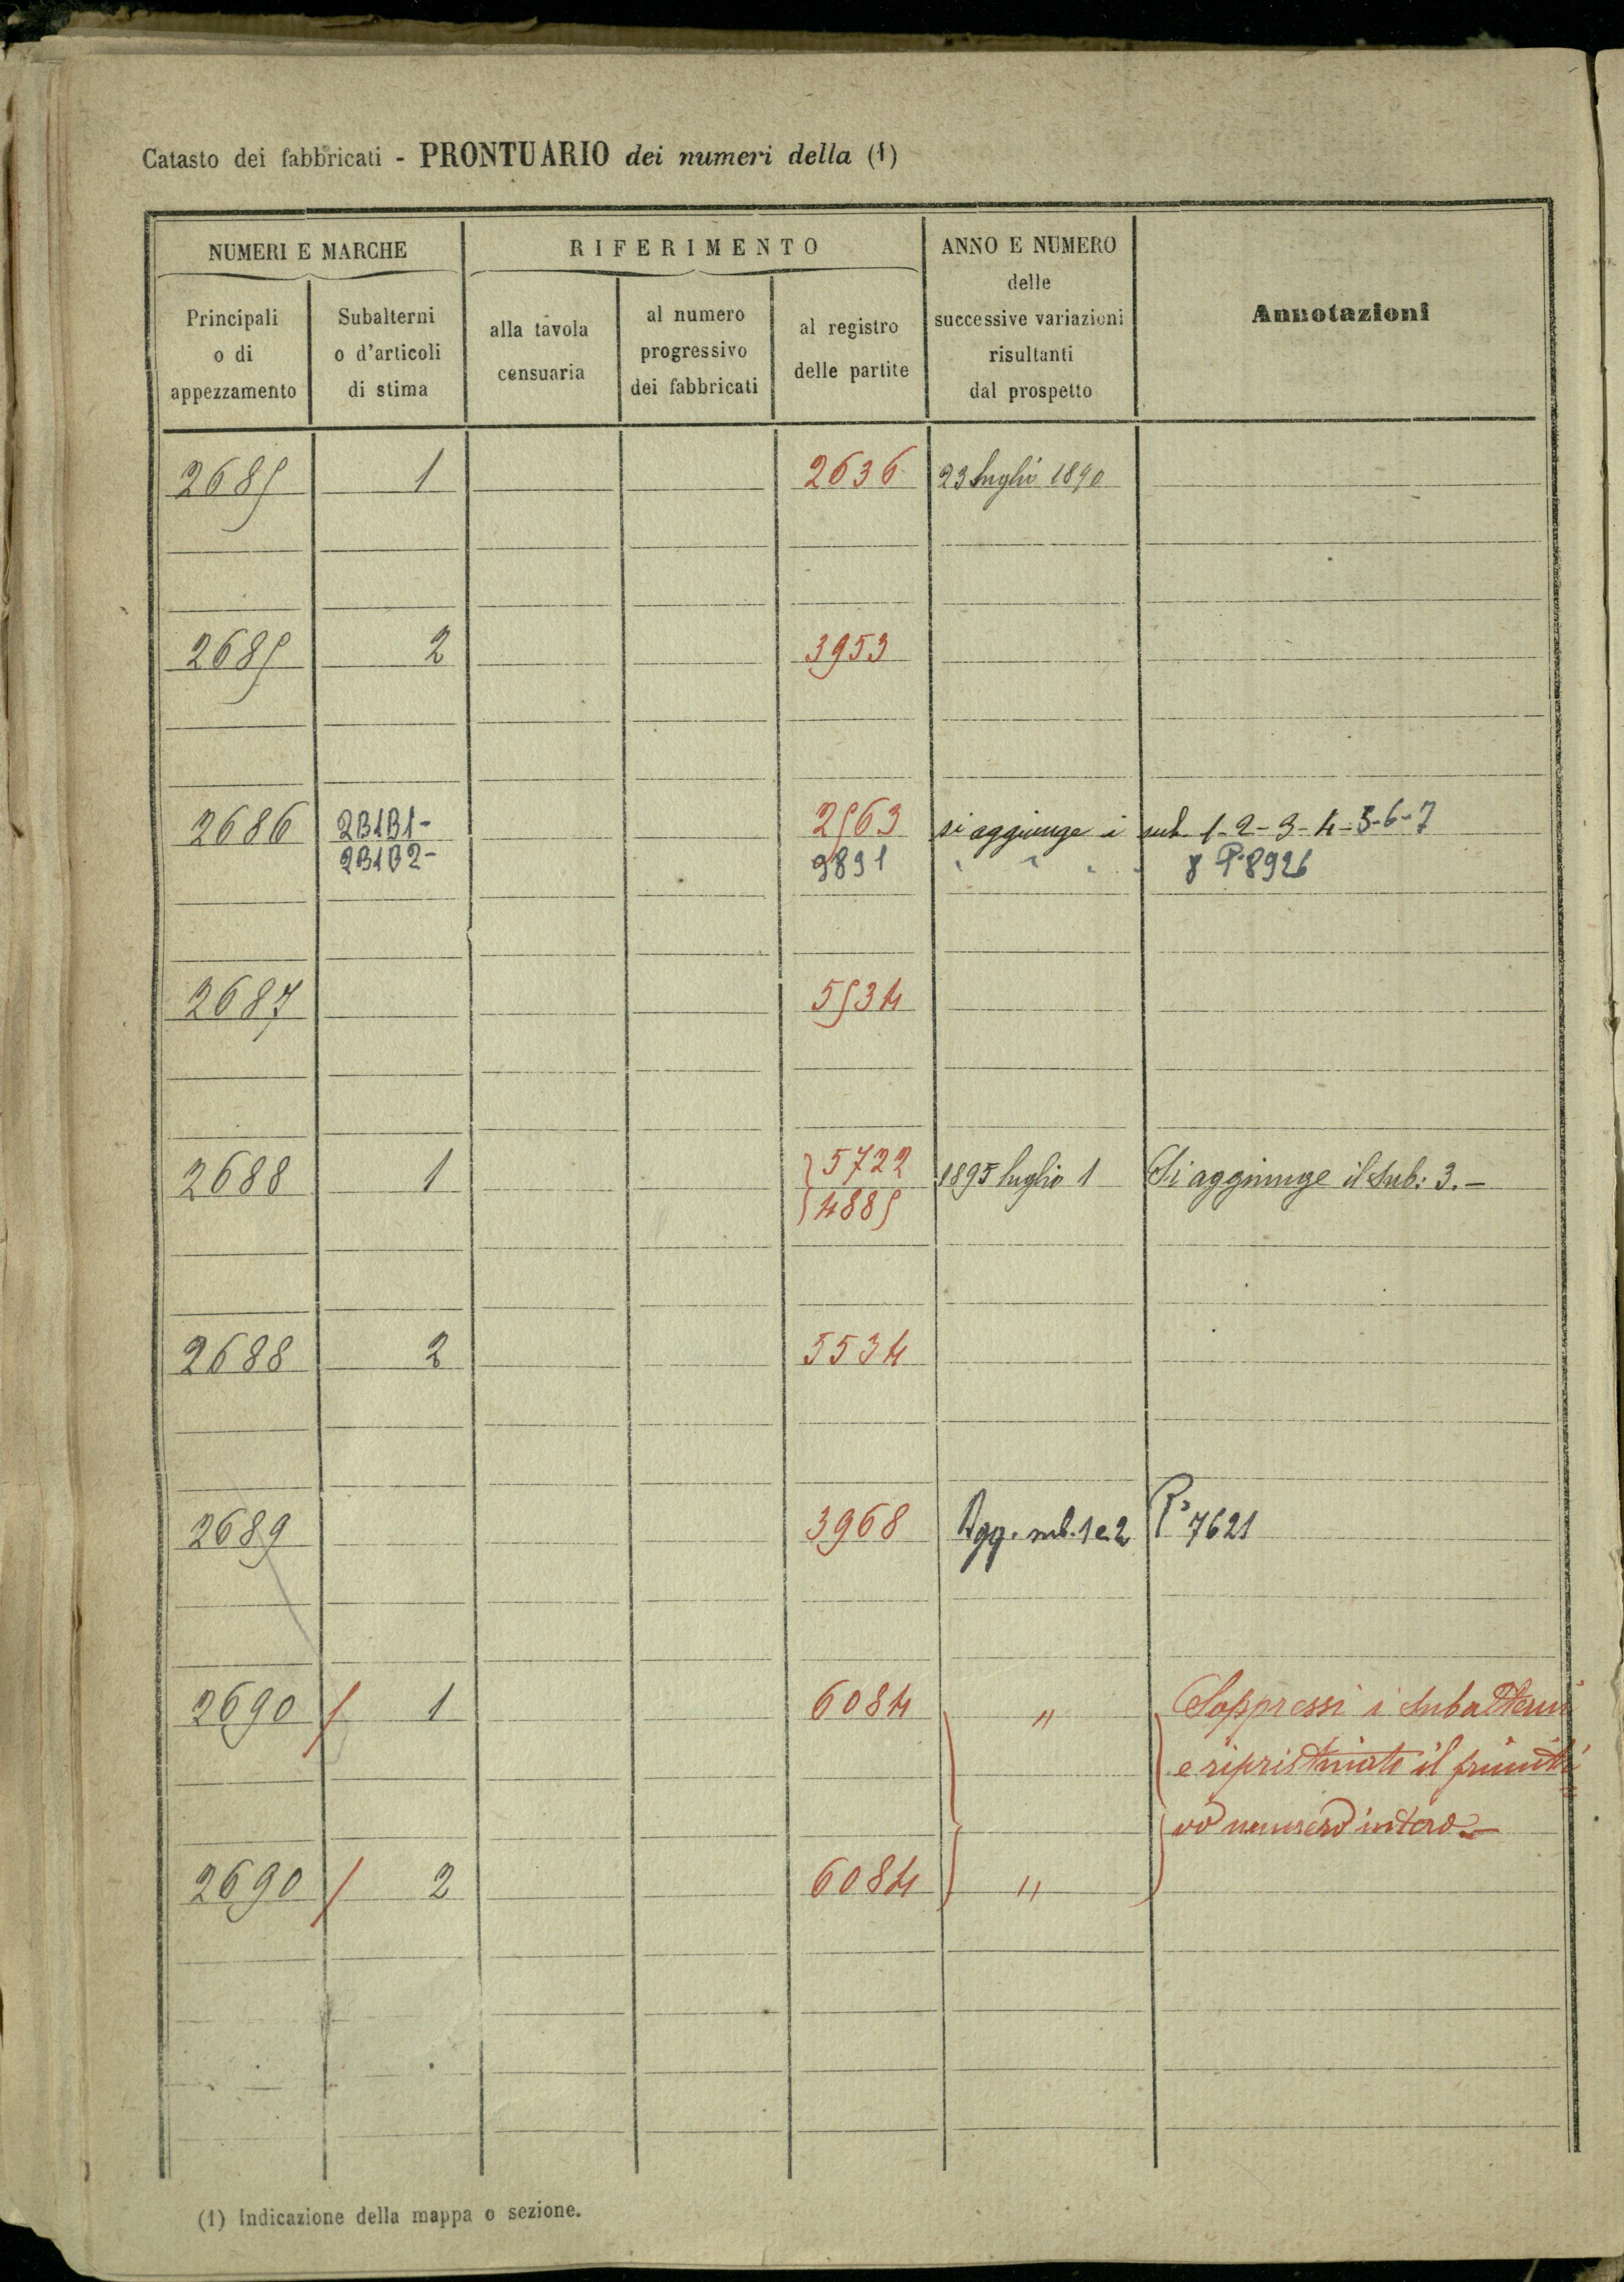 Catasto dei fabbricati - PRONTUARIO dei numeri della (1)
NUMERI E MARCHE
RIFERIMENTO
ANNO E NUMERO
delle
successive variazioni
risultanti
dal prospetto
Annotazioni
Principali
o di
appezzamento
Subalterni
o d'articoli
di stima
alla tavola
censuaria
al numero
progressivo
dei fabbricati
al registro
delle partite
2685 1 2636 23 luglio 1890
2685 2 3953
2686 2B1B1- 2563 si aggiunge i sub 1-2-3-4-5-6-7
2B1B2- 9891 " " " " 8 P. 8926
2687 5534
2688 1 5722 1895 luglio 1 Si aggiunge il Sub: 3.-
4885
2688 2 5534
2689 3968 Agg. sub. 1 e 2 P° 7621
2690 / 1 6084 " Soppressi i subalterni
e ripristinato il primiti=
vo numero intero.-
2690 / 2 6084 "
(1) Indicazione della mappa o sezione.